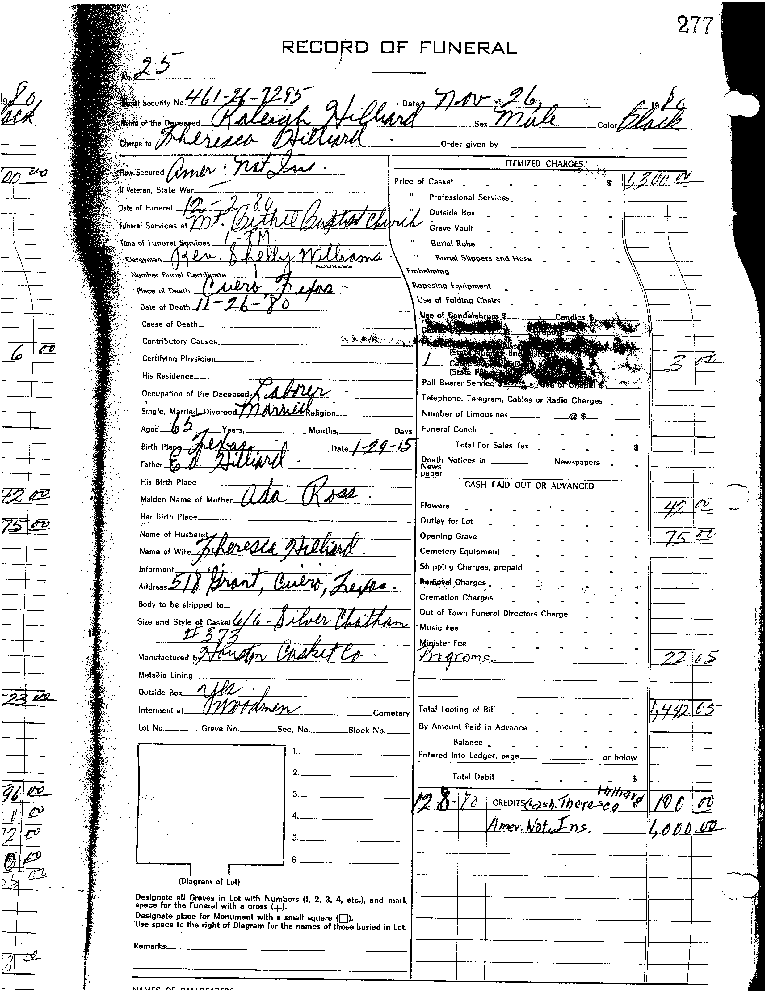 277
RECORD OF FUNERAL
No. 25
Social Security No. 461-26-7295 Date Nov. 26, 1980
Name of the Deceased Raleigh Hilliard Sex Male Color Black
Charge to Theresca Hilliard Order given by
How Secured Amer. Nat Ins.
If Veteran, State War
Date of Funeral 12-2-80
Funeral Services at Mt. Baptist Church
Time of Funeral Services
Clergyman Rev. Shelly Williams
Number Burial Certificate
Place of Death Cuero Texas
Date of Death 11-26-80
Cause of Death
Contributory Causes
Certifying Physician
His Residence
Occupation of the Deceased Laborer
Single, Married, Divorced Married Religion
Aged 65 Years, Months, Days
Birth Place Texas Date 1-29-15
Father Ed Hilliard
His Birth Place
Maiden Name of Mother Ada Ross
Her Birth Place
Name of Husband
Name of Wife Theresca Hilliard
Informant
Address 518 Grant, Cuero, Texas.
Body to be shipped to
Size and Style of Casket 6/6 - Silver Chatham
# 373
Manufactured by Houston Casket Co
Metallic Lining
Outside Box yes
Interment at Woodmen Cemetery
Lot No. Grave No. Sec. No. Block No.
1.
2.
3.
4.
5.
6.
(Diagram of Lot)
Designate all Graves in Lot with Numbers (1, 2, 3, 4, etc.), and mark
space for the Funeral with a cross (+).
Designate place for Monument with a small square (□).
Use space to the right of Diagram for the names of those buried in Lot.
Remarks
ITEMIZED CHARGES
Price of Casket $ 1,300 00
" Professional Services
Outside Box
Grave Vault
" Burial Robe
" Burial Slippers and Hose
Embalming
Reposing Equipment
Use of Folding Chairs
Use of Candelabrum $ Candles $
1 3 00
Pall Bearer Service
Telephone, Telegram, Cables or Radio Charges
Number of Limousines @ $
Funeral Coach
Total For Sales Tax $
Death Notices in Newspapers
News
paper
CASH PAID OUT OR ADVANCED
Flowers 42 00
Outlay for Lot
Opening Grave 75 00
Cemetery Equipment
Shipping Charges, prepaid
Removal Charges
Cremation Charges
Out of Town Funeral Directors Charge
Music Fee
Minister Fee
Programs 22 65
Total Footing of Bill 1,442 65
By Amount Paid in Advance
Balance
Entered into Ledger, page or below
Total Debit $
12 8-80 CREDITS Cash Theresca Hilliard 100 00
Amer. Nat. Ins. 1,000 00